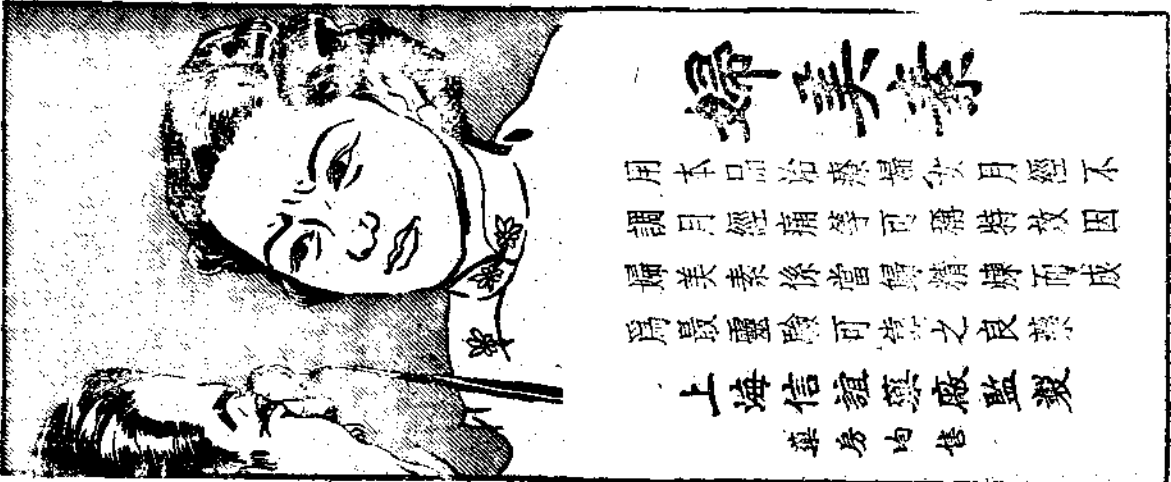 婦美素
用本品治療婦女月經不
調月經痛等可稱特效因
婦美素係當歸精煉而成
爲最靈驗可恃之良藥
上海信誼藥廠監製
藥房均售